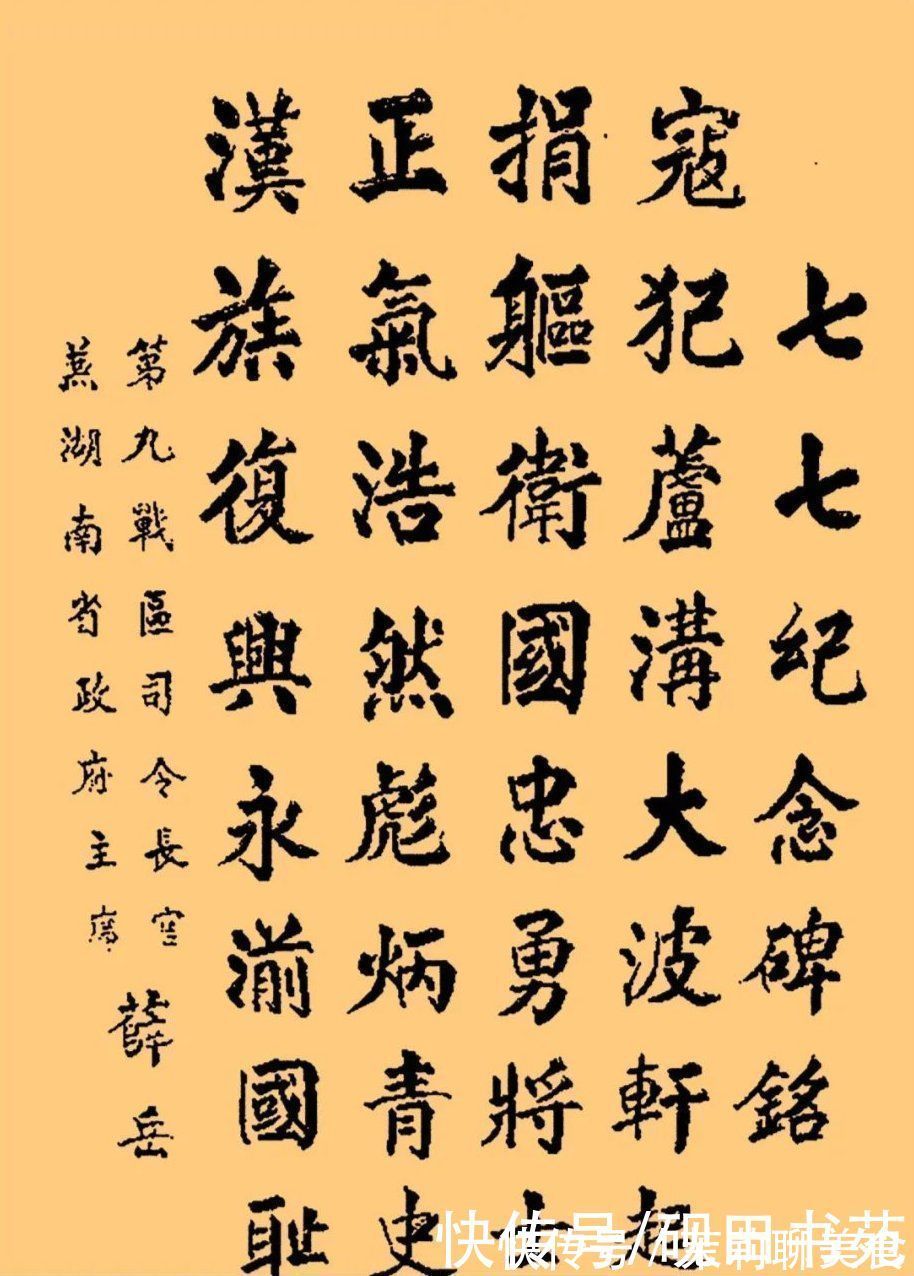 七七纪念碑銘
寇犯蘆溝大波軒起
捐軀衛國忠勇將士
正氣浩然彪炳青史
漢族復興永湔國耻
第九戰區司令長官
蒹湖南省政府主席
薛岳
快传号/砚田书苑